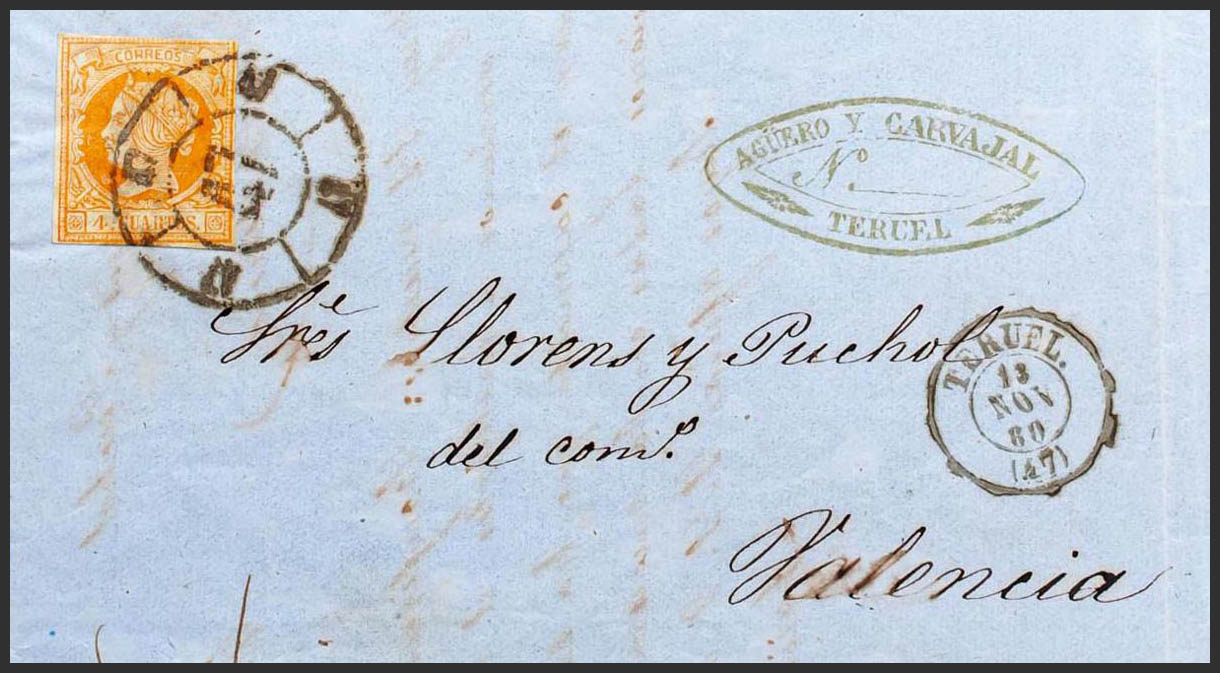 CORREOS
4 CUARTOS.
47
AGÜERO Y CARVAJAL
Nº
TERUEL
Sres Llorens y Puchol
del comº.
Valencia
TERUEL.
13
NOV
60
(47)